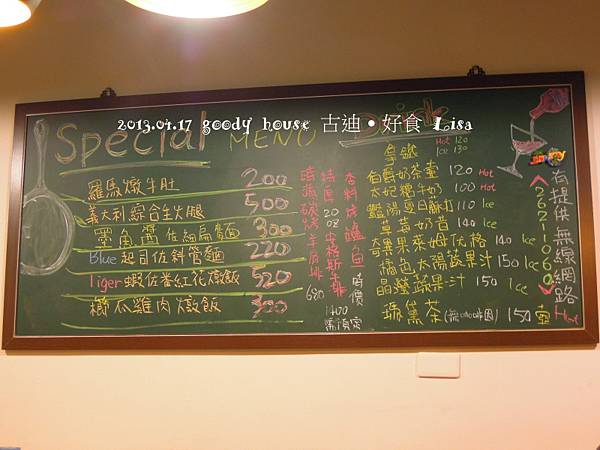 2013.04.17 goody house 古迪•好食 Lisa
Special MENU
羅馬燉牛肚 200
義大利綜合生火腿 500
墨魚醬佐細扁麵 300
Blue起司佐斜管麵 220
Tiger蝦佐番紅花燉飯 520
楜瓜雞肉燉飯 300
時蔬碳烤羊肩排 680
特選20oz安格斯牛排 1400 需預定
香料烤鱸魚 時價
Drink
拿鐵 Hot 120 Ice 130
伯爵奶茶壺 120 Hot
太妃糖牛奶 100 Hot
豔陽夏日蘇打 110 Ice
草莓奶昔 140 Ice
奇異果來姆优格 140 Ice
橘色太陽蔬果汁 150 Ice
晶瑩蔬果汁 150 Ice
熏茶(無咖啡因) 150壺 Hot
有提供無線網路
2621-1060